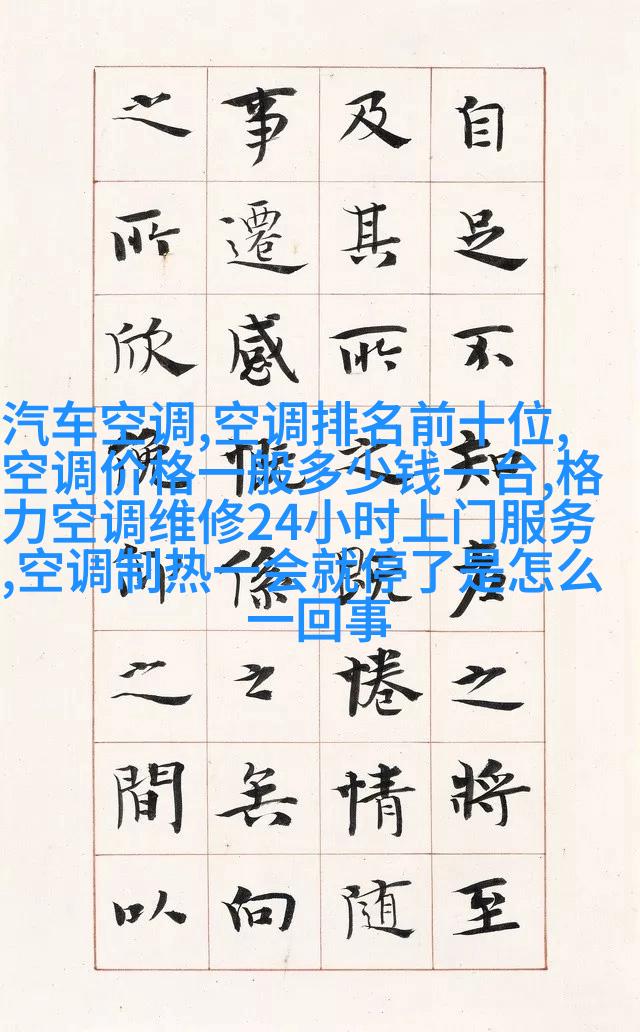 自足不知老之將至
及其所之既惓情隨
事遷感慨係之矣向
之所欣俛仰之間以
汽车空调,空调排名前十位,
空调价格一般多少钱一台,格
力空调维修24小时上门服务
,空调制热一会就停了是怎么
一回事